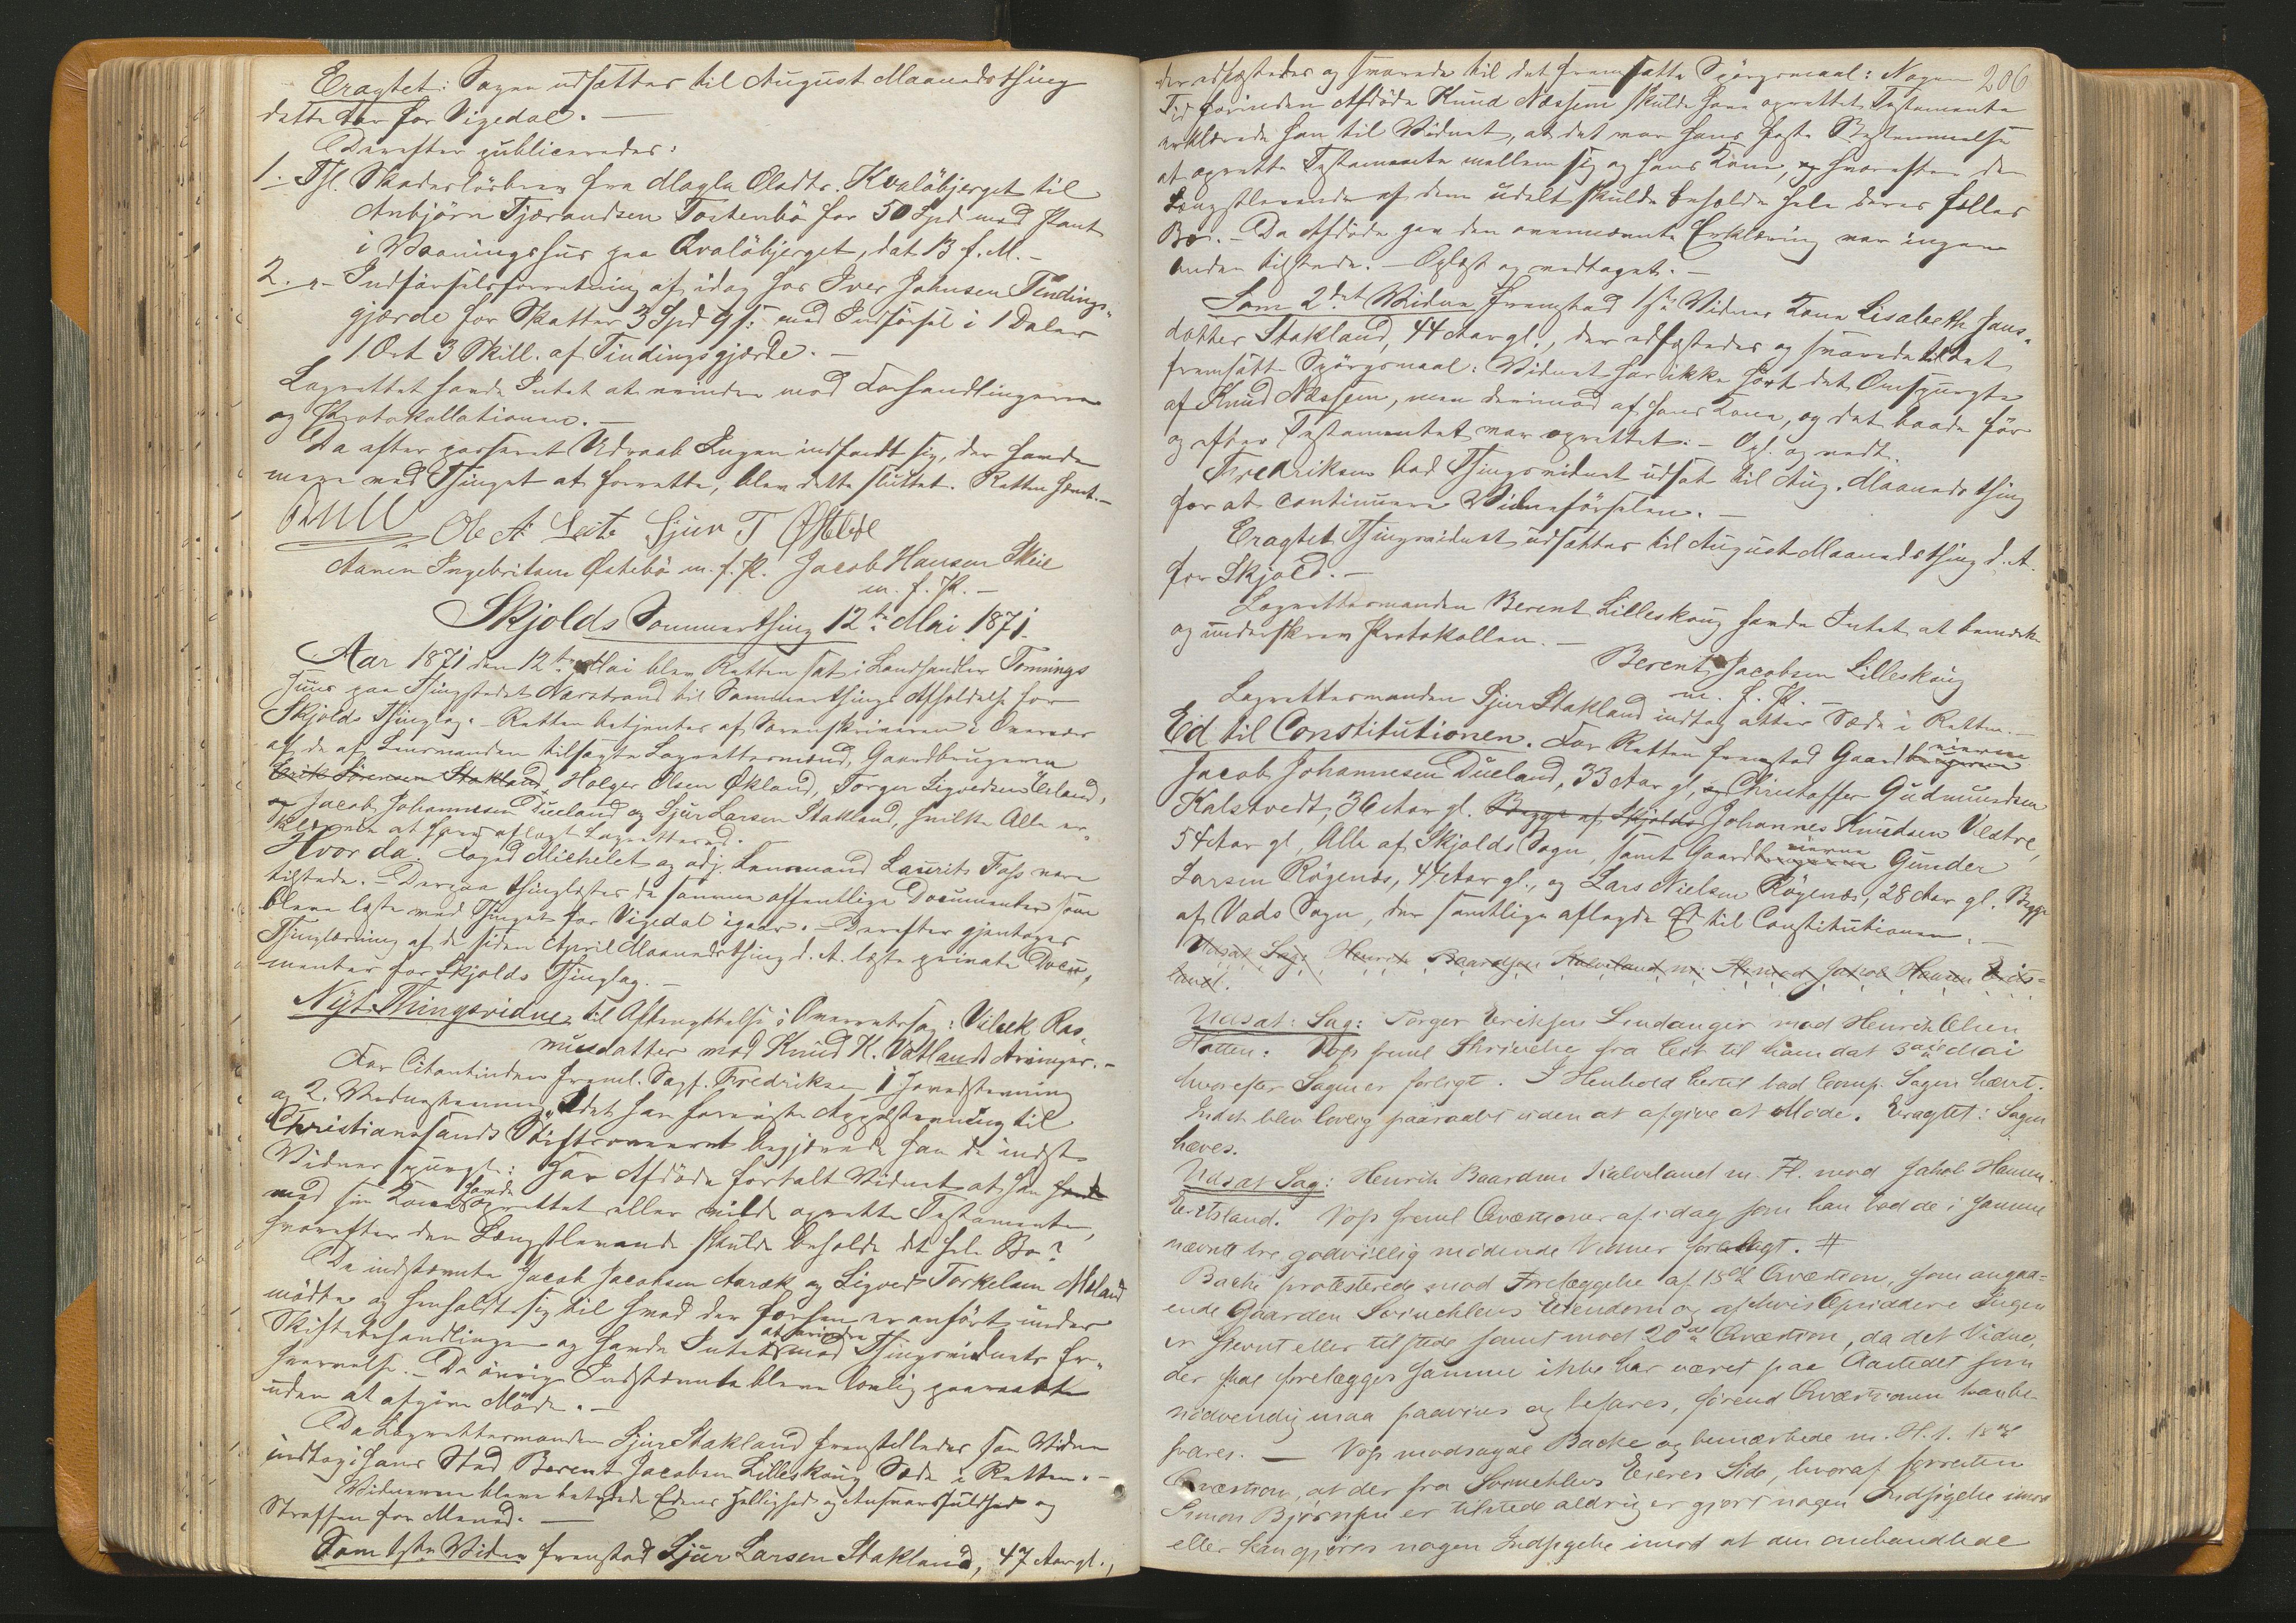 Eragtet: Sagen udsættes til August Maanedsthing
dette Aar for Vigedal. —
Derefter publiceredes:
1. Thl. Skadesløsbrev fra Magla Oladtr. Kvaløbjerget til
Anbjørn Tjærandsen Tostenbø for 50 Spd med Pant
i Vaaningshus paa Qvaløbjerget, dat 13 f. M. –
2. – Indførselsforretning af idag hos Iver Johnsen Tindings-
gjærde for Skatter 3 Spd 9 s: med Indførsel i 1 Daler
1 Ort 3 Skill. af Tindingsgjærde. –
Lagrettet havde Intet at erindre mod Forhandlingerne
og Protokollationen. –
Da efter passeret Udraab Ingen indfandt sig, der havde
mere ved Thinget at forrette, blev dette sluttet. Retten hævt. –
Ole A Leite Sjur T Østebø
Aanen Ingebritsen Østebø m. f. P. Jacob Hansen Skeie
m. f. P. –
Skjolds Sommerthing 12te Mai 1871.
Aar 1871 den 12te Mai blev Retten sat i Landhandler Tønnings
Huus paa Thingstedet Nærstrand til Sommerthings Afholdelse for
Skjolds Thinglag. – Retten betjentes af Sorenskriveren i Overvær
af de af Lensmanden tilsagte Lagrettesmænd, Gaardbrugerne
Erik Sørensen Stakland, Holger Olsen Økland, Torger Sigvedsen Erland,
og Jacob Johannesen Dueland og Sjur Larsen Stakland, hvilke Alle er-
klærede at have aflagt Lagrettesed. –
Hvor da: Foged Michelet og adj. Lensmand Laurits Foss vare
tilstede. – Derpaa thinglæstes de samme offentlige Documenter som
bleve læste ved Thinget for Vigedal igaar. – Derefter gjentoges
Thinglæsning af de siden April Maanedsthing d. A. læste private Docu-
menter for Skjolds Thinglag. –
Nyt Thingsvidne til Afbenyttelse i Overretssag: Vilsek. Ras-
musdatter mod Knud K. Vatlands Arvinger. –
For Citantinden freml. Sagf. Fredriksen 1 Hovedstevning
og 2. Vednestevning. Idet han foreviste Appelstevning til
Christianssands Stiftsoverret begjærede han de indst.
Vidner spurgt: Har Afdøde fortalt Vidnet at han havde
med sin Kone havde oprettet eller vilde oprette Testamente,
hvorefter den Længstlevende skulde beholde det hele Bo?
De indstevnte Jacob Jacobsen Aarek og Sigved Torkelsen Meland
mødte og henholdt sig til hvad der forhen er anført under
Skiftebehandlingen og havde Intet at erindre mod Thingsvidnets Er-
hvervelse. – De øvrige Indstevnte bleve lovlig paaraabt
uden at afgive Møde. –
Da Lagrettesmanden Sjur Stakland fremstilledes som Vidne
indtog i hans Sted Berent Jacobsen Lilleskoug Sæde i Retten. –
Vidnerne bleve betydede Edens Hellighed og Ansvarsfuldhed og
Straffen for Meened. –
Som 1ste Vidne fremstod Sjur Larsen Stakland, 47 Aar gl.,
206
der edfæstedes og svarede til det fremsatte Spørgsmaal: Nogen
Tid forinden Afdøde Knud Næssem skulde have oprettet Testamente
erklærede han til Vidnet, at det var hans faste Bestemmelse
at oprette Testamente mellem sig og hans Kone, og hvorefter den
Længstlevende af dem udelt skulde beholde hele deres fælles
Bo. – Da Afdøde gav den ovennævnte Erklæring var ingen
Anden tilstede. – Oplæst og vedtaget. –
Som 2det Vidne fremstod 1ste Vidnes Kone Lisabeth Jans-
datter Stakland, 44 Aar gl., der edfæstedes og svarede til det
fremsatte Spørgsmaal: Vidnet har ikke hørt det Omspurgte
af Knud Næssem, men derimod af hans Kone, og det baade før
og efter Testamentet var oprettet. – Opl. og vedt.
Fredriksen bad Thingsvidnet udsat til Aug. Maaneds thing
for at continuere Vidneførselen. –
Eragtet Thingsvidnet udsættes til August Maanedsthing d. A.
for Skjold. –
Lagrettesmanden Berent Lilleskoug havde Intet at bemærke
og underskrev Protokollen. –
Berent Jacobsen Lilleskoug
m. f. P. –
Lagrettesmanden Sjur Stakland indtog atter Sæde i Retten. –
Ed til Constitutionen. For Retten fremstod Gaardbrugerne eierne
Jacob Johannesen Dueland, 33 Aar gl, og Christoffer Gudmundsen
Kalstvedt, 36 Aar gl. Begge af Skjolds Johannes Knudsen Vestre,
54 Aar gl, Alle af Skjolds Sogn, samt Gaardbrugerne eierne Gunder
Larsen Røgenæs, 44 Aar gl., og Lars Nielsen Røgenæs, 28 Aar gl. Begge
af Vads Sogn, der samtlige aflagde Ed til Constitutionen. –
Udsat Sag: Henrik Baardsen Kalveland m. Fl. mod Jakob Hansen Erits-
land.
Udsat: Sag: Torger Eriksen Sandanger mod Henrik Olsen
Hatten: Voss freml Skrivelse fra Cit til ham dat 3die Mai
hvorefter Sagen er forligt. I Henhold hertil bad Comp. Sagen hævt.
Indst. blev lovlig paaraabt uden at afgive at Møde. Eragtet: Sagen
hæves.
Udsat Sag: Henrik Baardsen Kalveland m. Fl. mod Jakob Hansen
Eritsland. Voss freml Qvæstioner af idag som han bad de i samme
nævnte tre godvillig mødende Vidner forelagt. #
Backe protesterede mod Forelæggelse af 18de Qvæstion, som angaa-
ende Gaarden Svinehlens Eiendom og af hvis Opsiddere Ingen
er stevnt eller tilstede samt mod 20de Qvæstion, da det Vidne,
der skal forelægges samme ikke har været paa Aastedet som
nødvendig maa paavises og befares, førend Qvæstionen kan be-
svares. — Voss modsagde Backe og bemærkede m. H. t. 18de
Qvæstion, at der fra Svinehlens Eieres Side, hvoraf forresten
Simon Bjørnsen er tilstede aldrig er gjort nogen Indsigelse imod
eller kan gjøres nogen Indsigelse imod at den omhandlede